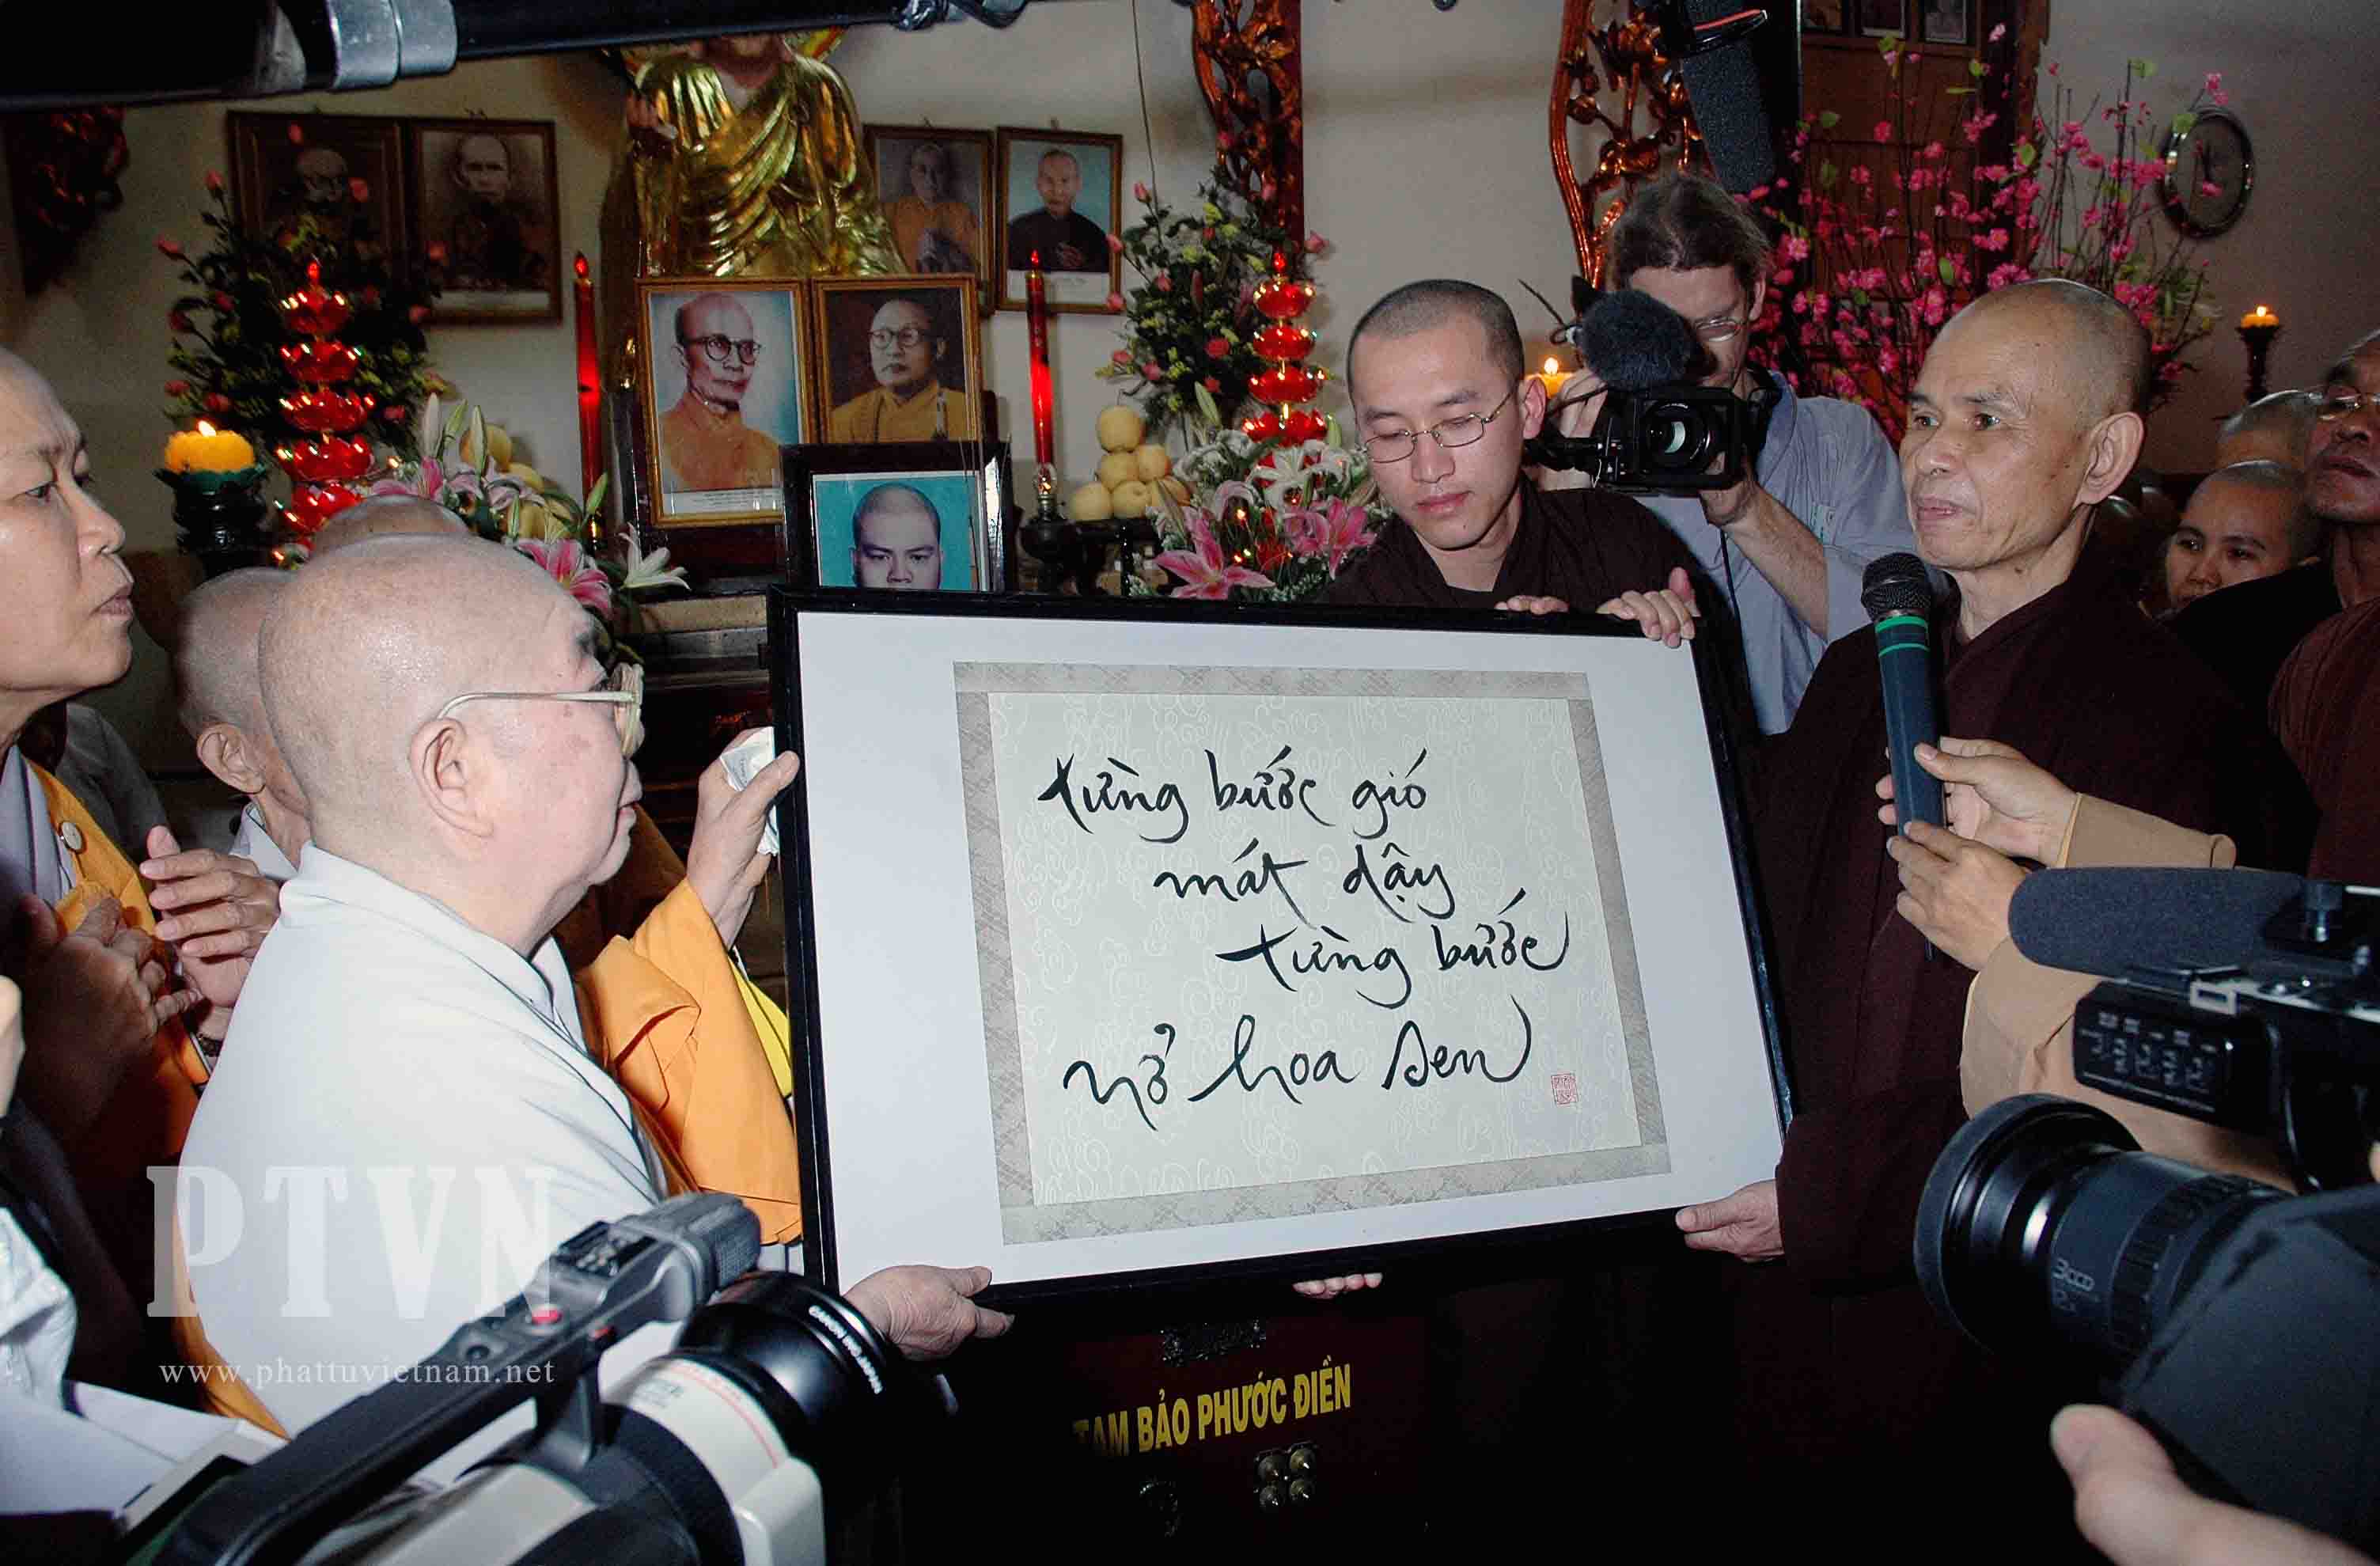 từng bước gió
mát dậy
từng bước
nở hoa sen
PTVN
www.phattuvietnam.net
TAM BẢO PHƯỚC ĐIỀN
3CCD